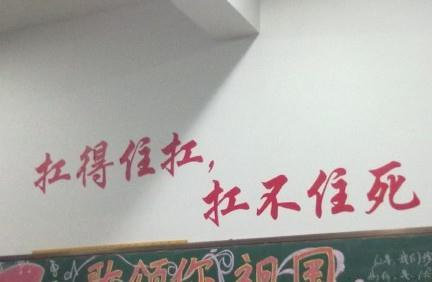 扛得住扛，
扛不住死
歌颂你 祖国